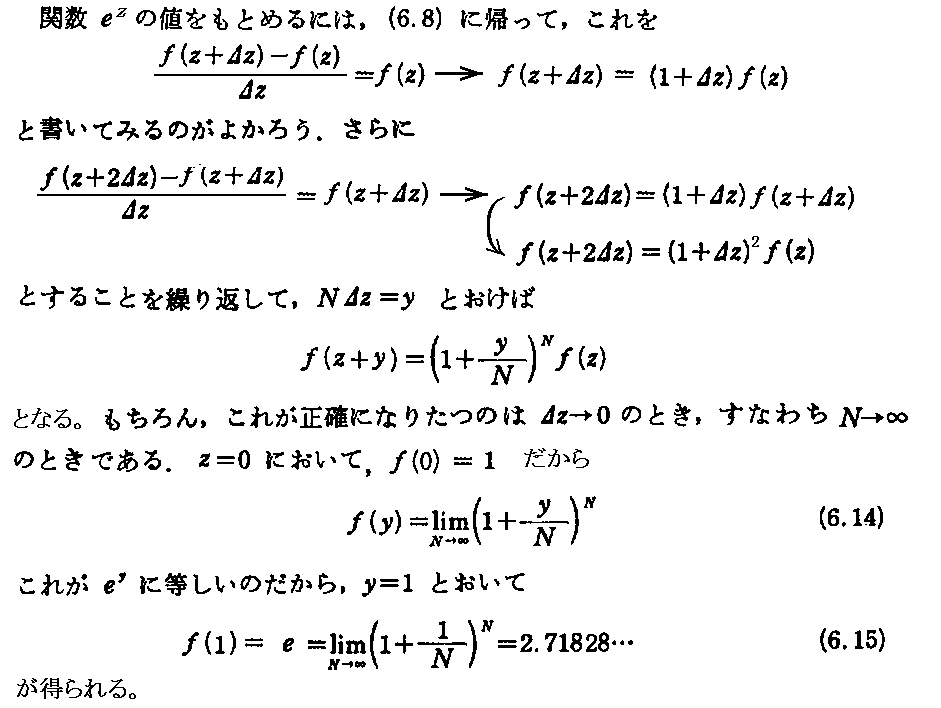 関数 e^z の値をもとめるには, (6.8) に帰って, これを
\frac{f(z+Δz)-f(z)}{Δz} = f(z) → f(z+Δz) = (1+Δz)f(z)
と書いてみるのがよかろう. さらに
\frac{f(z+2Δz)-f(z+Δz)}{Δz} = f(z+Δz) → f(z+2Δz)=(1+Δz)f(z+Δz)
f(z+2Δz)=(1+Δz)^2 f(z)
とすることを繰り返して, NΔz=y とおけば
f(z+y)=(1+\frac{y}{N})^N f(z)
となる。もちろん, これが正確になりたつのは Δz→0 のとき, すなわち N→∞
のときである. z=0 において, f(0) = 1 だから
f(y)=\lim_{N→∞}(1+\frac{y}{N})^N (6.14)
これが e^y に等しいのだから, y=1 とおいて
f(1)= e =\lim_{N→∞}(1+\frac{1}{N})^N=2.71828… (6.15)
が得られる。